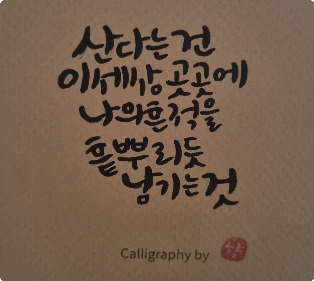 산다는 건
이 세상 곳곳에
나의 흔적을
흩뿌리듯
남기는 것
Calligraphy by